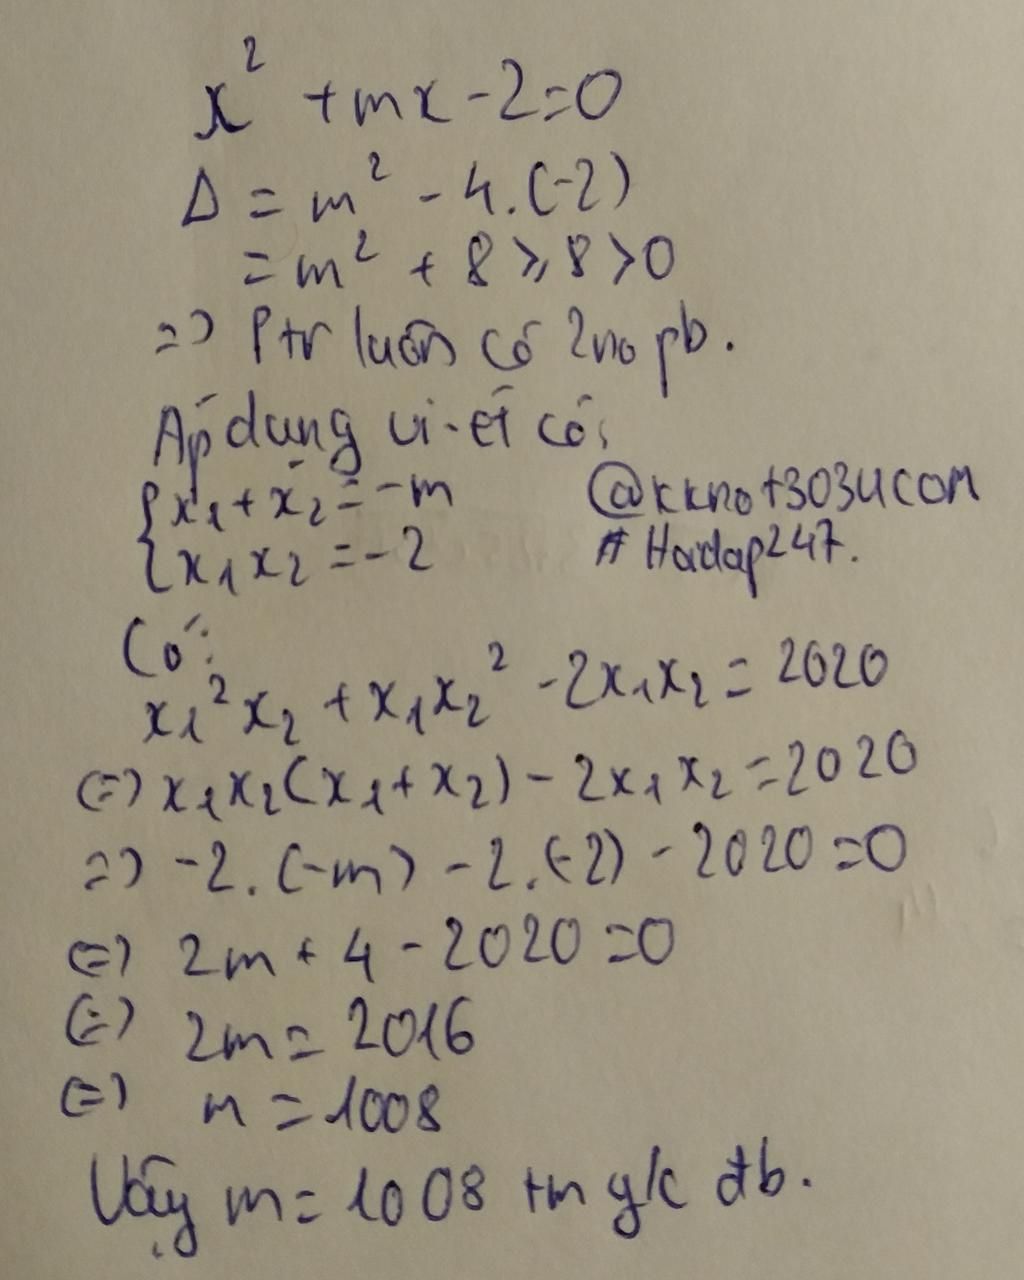 x² + mx - 2 = 0
Δ = m² - 4.(-2)
= m² + 8 ≥ 8 > 0
=> Ptr luôn có 2 no pb.
Áp dụng vi-ét có:
{x₁ + x₂ = -m
{x₁x₂ = -2
@kkno+3034com
# Hoidap247.
Có:
x₁²x₂ + x₁x₂² - 2x₁x₂ = 2020
(=) x₁x₂(x₁ + x₂) - 2x₁x₂ = 2020
=> -2.(-m) - 2.(-2) - 2020 = 0
(=) 2m + 4 - 2020 = 0
(=) 2m = 2016
(=) m = 1008
Vậy m = 1008 tm y/c đb.